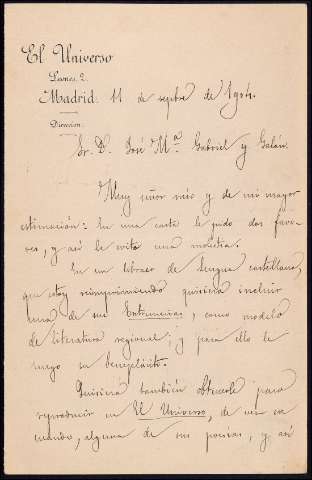 El Universo
Madrid: 11 de sepbre de 1904.
Dirección
Sr. D. José M.ª Gabriel y Galán.
Muy señor mío y de mi mayor
estimación: En una carta le pido dos favo-
res, y así le evito una molestia.
En un libraco de lengua castellana,
que estoy reimprimiendo quisiera incluir
una de sus Extremeñas, como modelo
de literatura regional; y para ello le
ruego su beneplácito.
Quisiera también obtenerle para
reproducir en El Universo, de vez en
cuando, alguna de sus poesías, y así